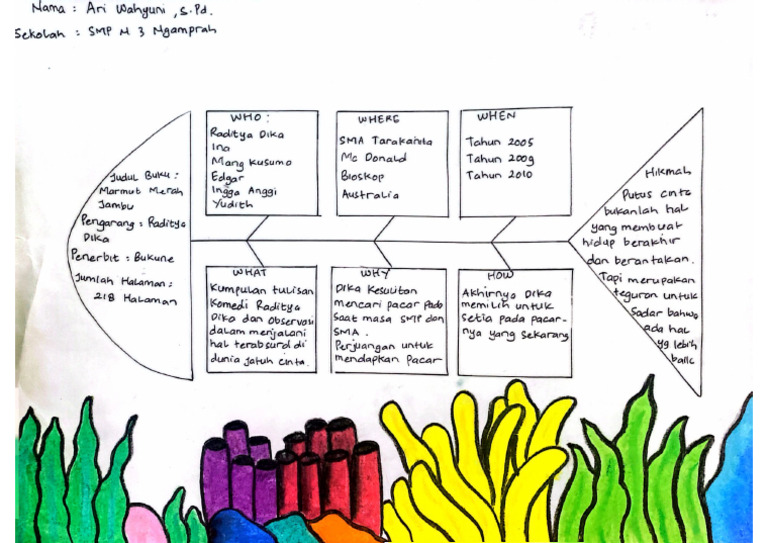 Nama : Ari Wahyuni, S.Pd.
Sekolah : SMP N 3 Ngamprah
Judul Buku :
Marmut Merah
Jambu
Pengarang : Raditya
Dika
Penerbit : Bukune
Jumlah Halaman :
218 Halaman
WHO :
Raditya Dika
Ina
Mang Kusumo
Edgar
Ingga Anggi
Yudith
WHERE
SMA Tarakanita
Mc Donald
Bioskop
Australia
WHEN
Tahun 2005
Tahun 2009
Tahun 2010
WHAT
Kumpulan tulisan
Komedi Raditya
Dika dan Observasi
dalam menjalani
hal terabsurd di
dunia jatuh cinta.
WHY
Dika Kesulitan
mencari pacar pada
Saat masa SMP dan
SMA.
Perjuangan untuk
mendapkan pacar
HOW
Akhirnya Dika
memilih untuk
Setia pada pacar-
nya yang Sekarang
Hikmah
Putus cinta
bukanlah hal
yang membuat
hidup berakhir
dan berantakan.
Tapi merupakan
teguron untuk
Sadar bahwa
ada hal
yg lebih
baik